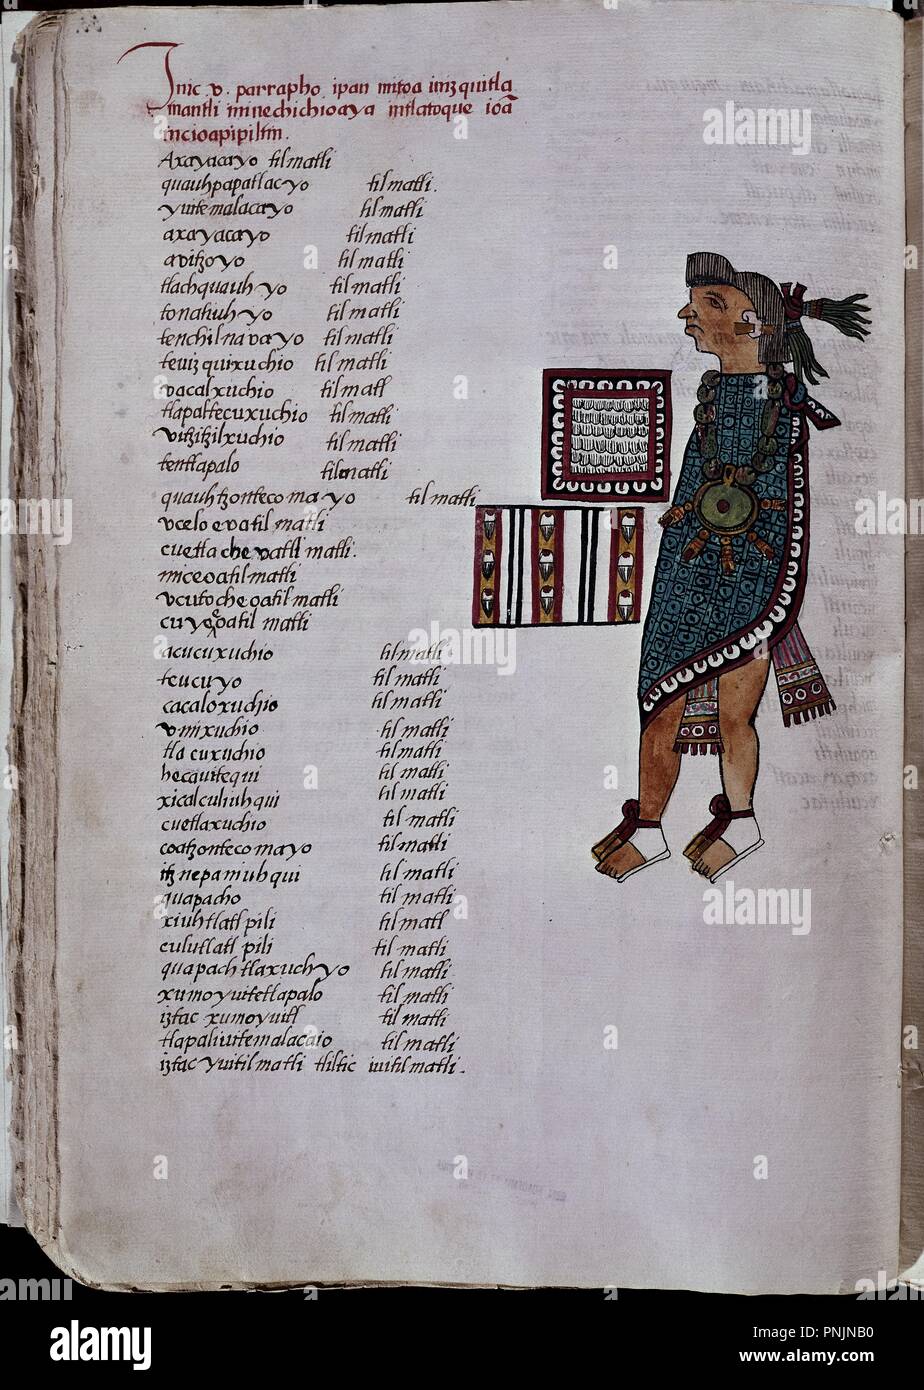 Inic v. parrapho ipan mitoa inizquitla
mantli inic michichioaya intlatoque ioā
in cioapipiltin.
Axayacayo tilmatli
quauhpapatlacyo tilmatli.
yuitemalacayo tilmatli
axayacayo tilmatli
avitzoyo tilmatli
tlachquauhyo tilmatli
tonatiuhyo tilmatli
tenchilnavayo tilmatli
teuizquixuchio tilmatli
vacalxuchio tilmatl
tlapaltecuxuchio tilmatli
vitzitzilxuchio tilmatli
tentlapalo tilmatli
quauhtzontecomayo tilmatli
vceloevatilmatli
cuetlachevatlimatli.
miceoatilmatli
vcutocheoatilmatli
cuyoeoatilmatli
acucuxuchio tilmatli
teucuyo tilmatli
cacaloxuchio tilmatli
vmixuchio tilmatli
tlacuxuchio tilmatli
hecauitequi tilmatli
xicalculiuhqui tilmatli
cuetlaxuchio tilmatli
coatzontecomayo tilmatli
itznepaniuhqui tilmatli
quapacho tilmatli
xiuhtlatlpili tilmatl
culutlatlpili tilmatli
quapachtlaxuchyo tilmatli
xumoyuitetlapalo tilmatli
iztac xumoyuitl tilmatli
tlapaliuitemalacaio tilmatli
iztac yuitilmatli tliltic iuitilmatli.
alamy
alamy
Image ID: PNJNB0
www.alamy.com